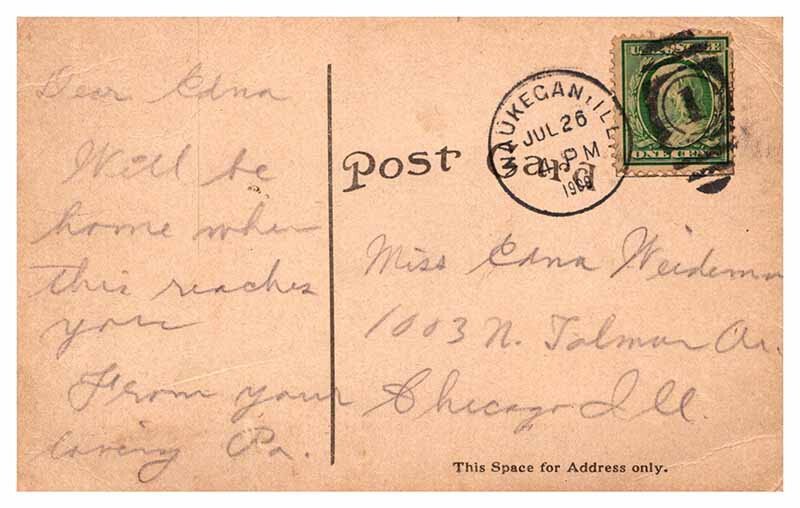 Dear Edna
Will be
home when
this reaches
you
From your
loving Pa.
Post Card
WAUKEGAN, ILL.
JUL 26
4 PM
1909
U.S. POSTAGE
1
ONE CENT
Miss Edna Weideman
1003 N. Talman Av.
Chicago Ill.
This Space for Address only.